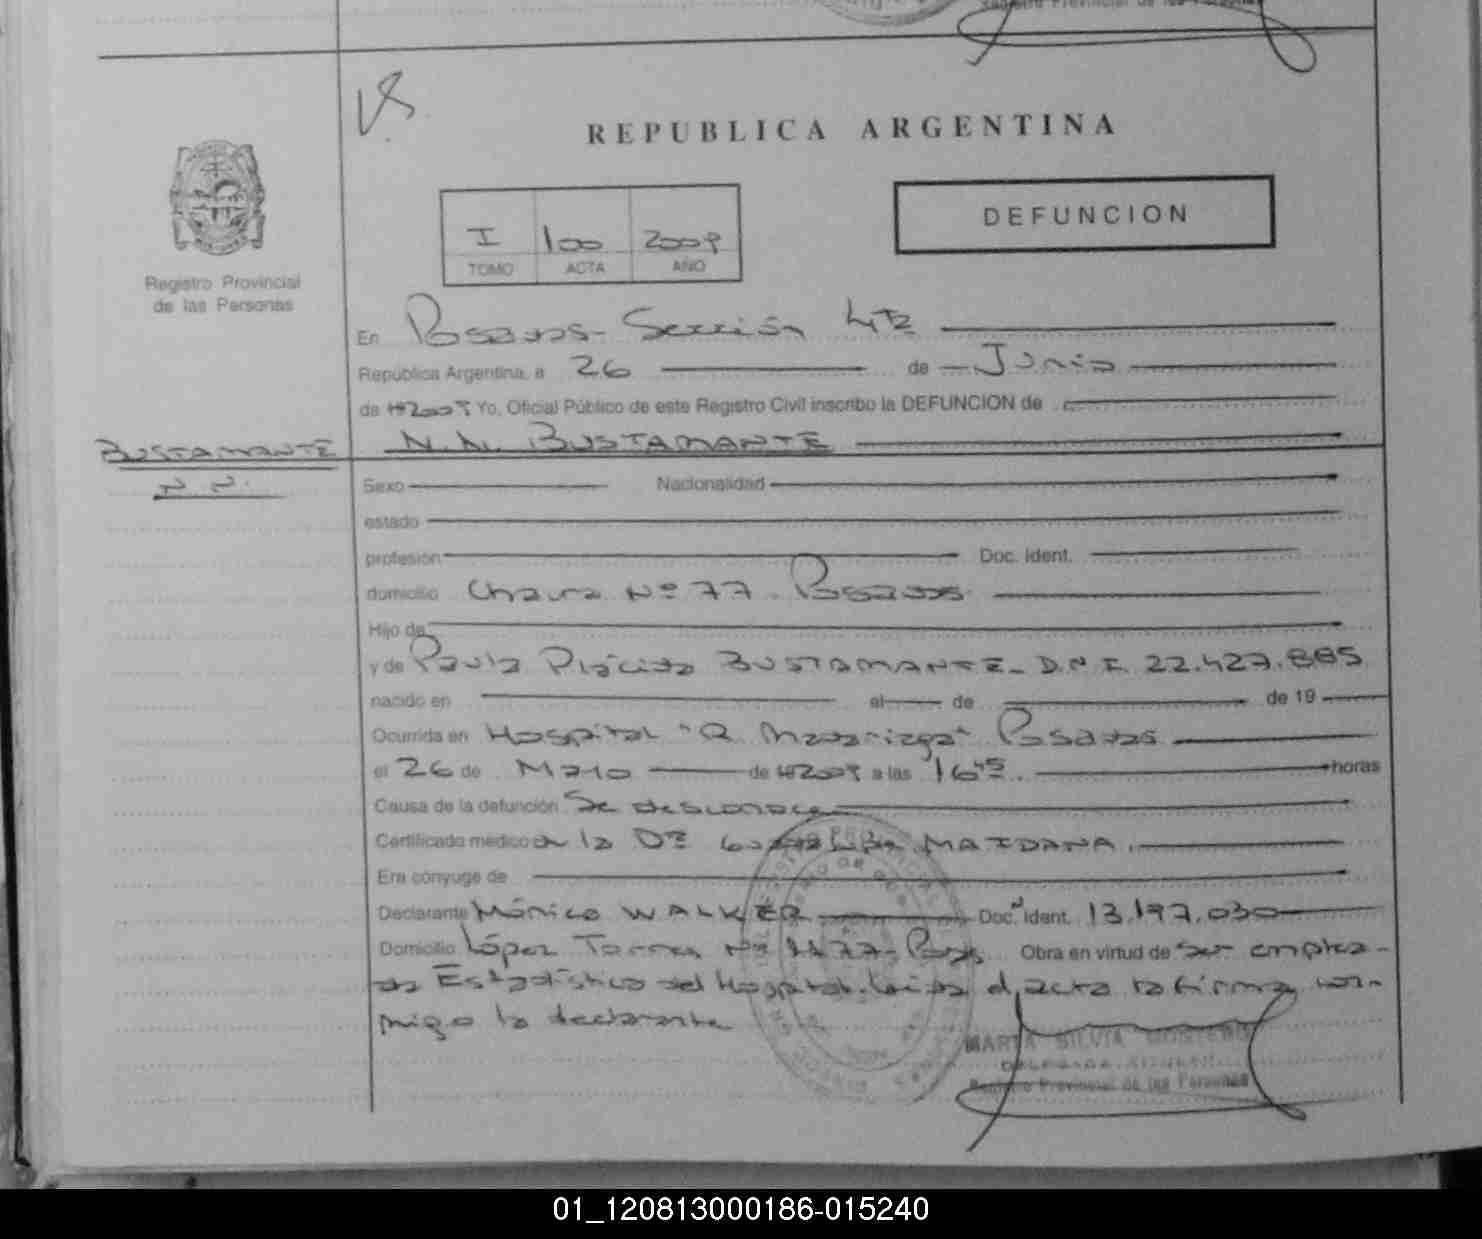 Registro Provincial de las Personas
REPUBLICA ARGENTINA
DEFUNCION
I 100 2009
TOMO ACTA AÑO
Registro Provincial
de las Personas
En Posadas - Sección 4ta
República Argentina, a 26 de Junio
de 19 2009 Yo, Oficial Público de este Registro Civil inscribo la DEFUNCION de
BUSTAMANTE
N.N. BUSTAMANTE
N. N.
Sexo Nacionalidad
estado
profesión Doc. Ident.
domicilio Chacra Nº 77 - Posadas
Hijo de
y de Paula Plácida BUSTAMANTE - D.N.I. 22.427.885
nacido en el de de 19
Ocurrida en Hospital "R. Madariaga" Posadas
el 26 de Mayo de 19 2009 a las 16 horas
Causa de la defunción Se desconoce
Certificado médico de la Dra MAIDANA
Era cónyuge de
Declarante Mónica WALKER Doc. Ident. 13.197.030
Domicilio López Torres Nº 1177 - Posadas Obra en virtud de ser emplea-
da Estadística del Hospital. Leída el acta la firma con-
migo la declarante
MARTA SILVIA
DELEGADA TITULAR
Registro Provincial de las Personas
01_120813000186-015240